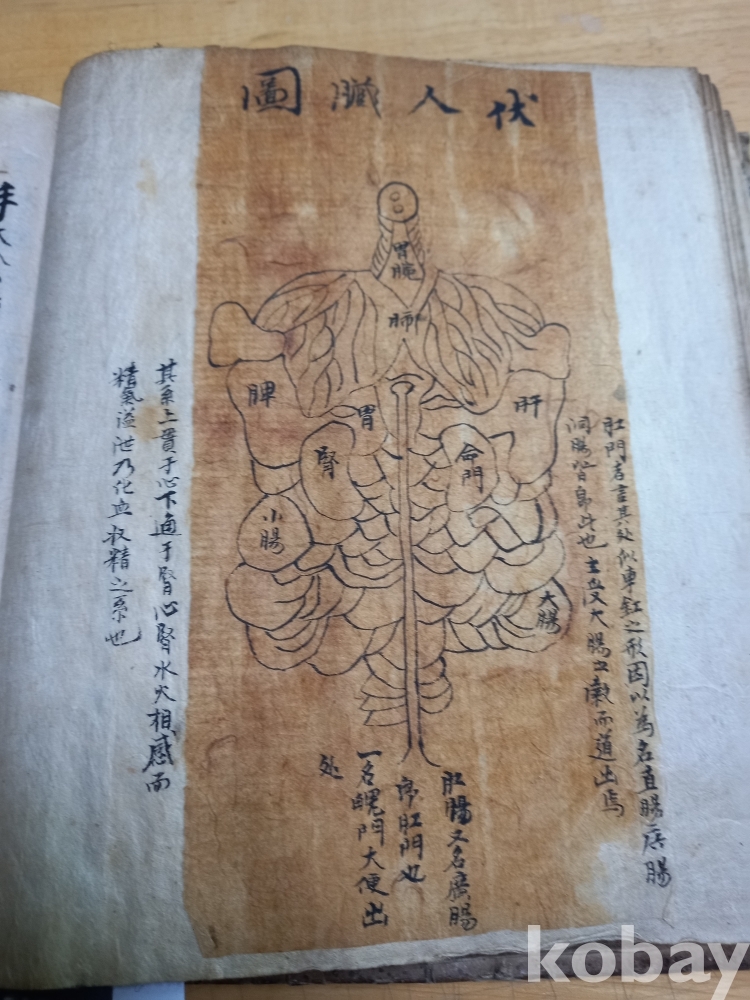 伏人臟圖
胃脘
肺
脾
胃
肝
腎
命門
小腸
大腸
肛門者言其处似車釭之形因以為名直腸广腸
洞腸皆即此也主受大腸之而道出焉
肛腸又名廣腸
即肛門也
一名魄門大便出
处
其系上貫于心下通于腎心腎水火相感而
精氣溢泄乃化血收精之系也
kobay